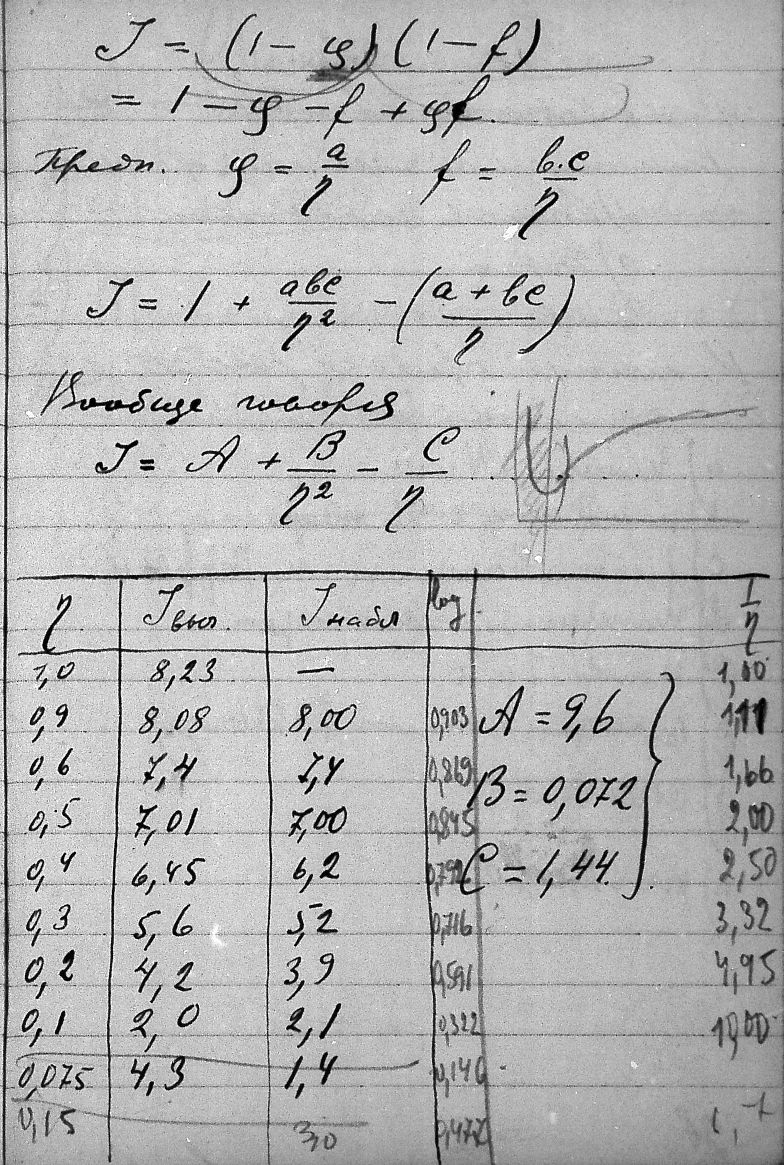 J = (1 − φ)(1 − f)
= 1 − φ − f + φf.
Предп. φ = a/η f = b·c/η
J = 1 + abc/η² − (a + bc/η)
Вообще говоря
J = A + B/η² − C/η
η Jвыч. Jнабл log 1/η
1,0 8,23 — 1,00
0,9 8,08 8,00 0,903 A = 9,6 1,11
0,6 7,4 7,4 0,869 B = 0,072 1,66
0,5 7,01 7,00 0,845 2,00
0,4 6,45 6,2 0,792 C = 1,44 2,50
0,3 5,6 5,2 0,716 3,32
0,2 4,2 3,9 0,591 4,95
0,1 2,0 2,1 0,322 10,00
0,075 4,3 1,4 0,146
0,15 3,0 0,477